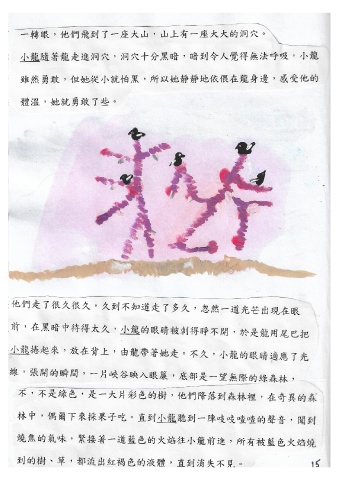 一轉眼，他們飛到了一座大山，山上有一座大大的洞穴。
小龍隨著龍走進洞穴，洞穴十分黑暗，暗到令人覺得無法呼吸，小龍
雖然勇敢，但她從小就怕黑，所以她靜靜地依偎在龍身邊，感受他的
體溫，她就勇敢了些。
他們走了很久很久，久到不知道走了多久，忽然一道光芒出現在眼
前，在黑暗中待得太久，小龍的眼睛被刺得睜不開，於是龍用尾巴把
小龍捲起來，放在背上，由龍帶著她走。不久，小龍的眼睛適應了光
線，張開的瞬間，一片峽谷映入眼簾，底部是一望無際的綠森林，
不，不是綠色，是一大片彩色的樹，他們降落到森林裡，在奇異的森
林中，偶爾下來採果子吃，直到小龍聽到一陣吱吱喳喳的聲音，聞到
燒焦的氣味，緊接著一道藍色的火焰往小龍前進，所有被藍色火焰燒
到的樹、草，都流出紅褐色的液體，直到消失不見。
15